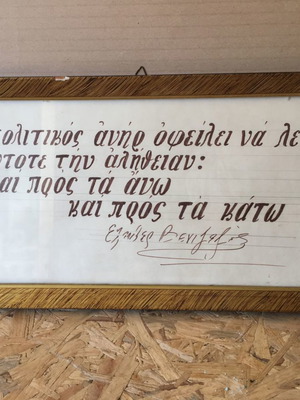 ολιτικός ἀνήρ ὀφείλει νά λε
τοτε τήν ἀλήθειαν:
αι πρός τά ἄνω
και πρός τά κάτω
Ελευθερ Βενιζελος